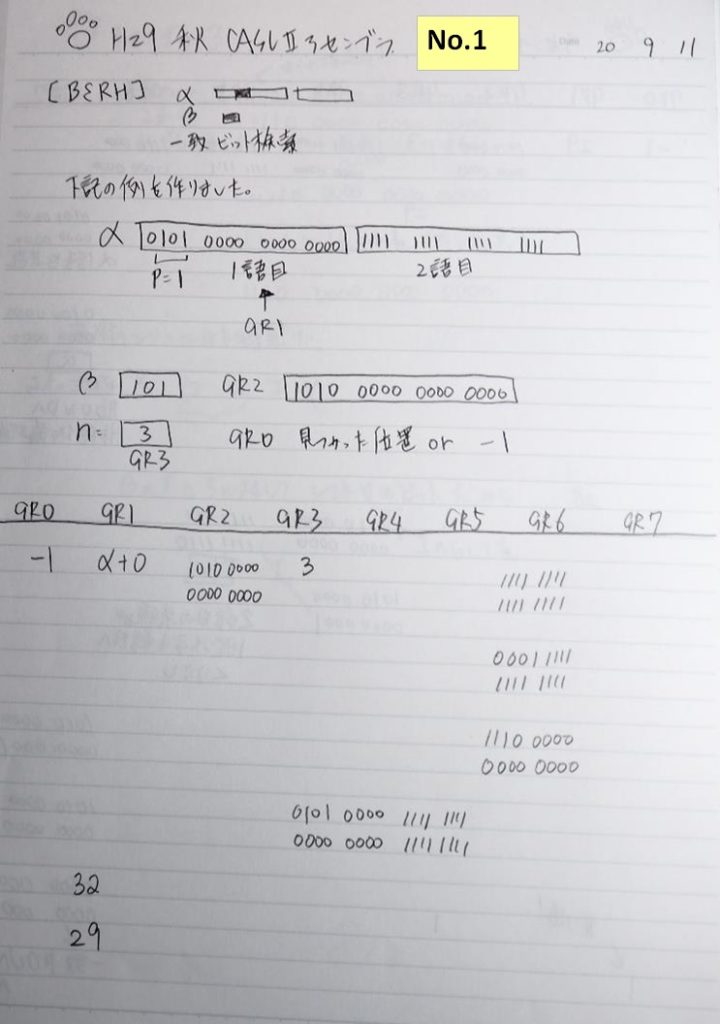 H29 秋 CASLⅡ アセンブラ No.1 20 9 11
[BSRH] α
β
一致ビット検索
下記の例を作りました。
α 0101 0000 0000 0000 1111 1111 1111 1111
P=1 1語目 2語目
GR1
β 101 GR2 1010 0000 0000 0000
n= 3 GR0 見つかった位置 or -1
GR3
GR0 GR1 GR2 GR3 GR4 GR5 GR6 GR7
-1 α+0 1010 0000 3 1111 1111
0000 0000 1111 1111
0001 1111
1111 1111
1110 0000
0000 0000
0101 0000 1111 1111
0000 0000 1111 1111
32
29